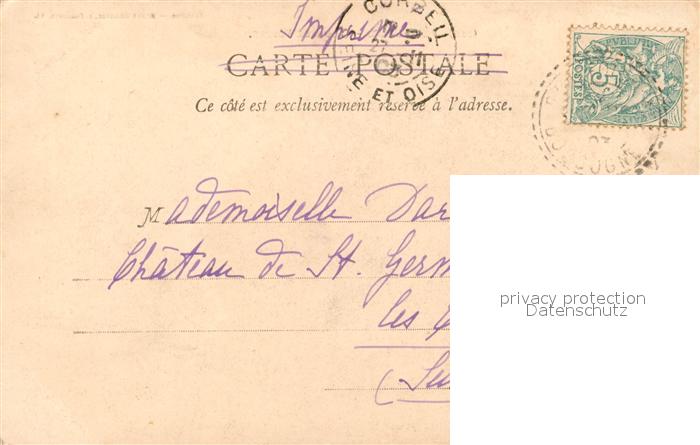 Imprimé
CORBEIL
SEINE ET OISE
CARTE POSTALE
Ce côté est exclusivement réservé à l'adresse.
5
POSTES
Mademoiselle Dar
Château de St. Germ
les
privacy protection
Datenschutz